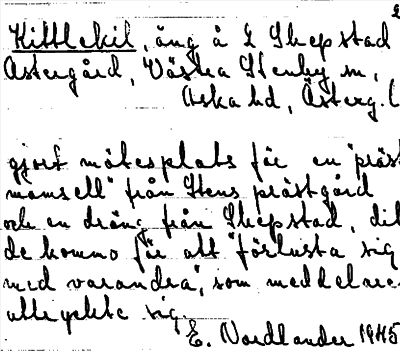 Kittlekil, äng å L Skepstad
Östergård, Västra Stenby sn,
Aska hd, Österg. l
gjort mötesplats för en "präst
mamsell" från Stens prästgård
och en dräng från Skepstad, dit
de kommo för att "förlusta sig
med varandra", som meddelare
uttryckte sig.
E. Nordlander 1945